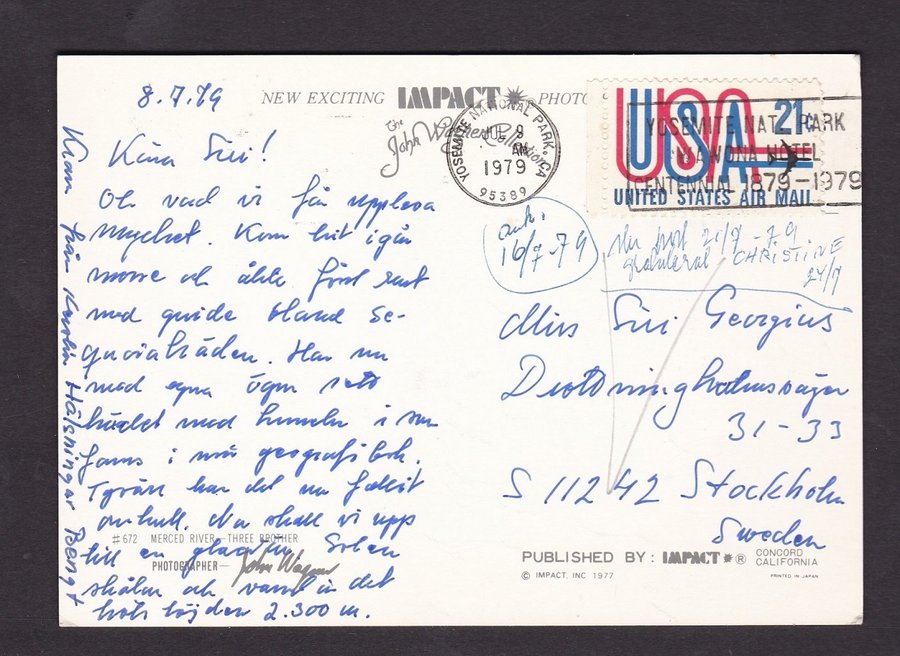 8.7.79
NEW EXCITING IMPACT PHOTO
The John Wagner Collection
YOSEMITE NATIONAL PARK, CA
JUL 9
1979
95389
USA 21c
UNITED STATES AIR MAIL
YOSEMITE NATL PARK
WAWONA HOTEL
CENTENNIAL 1879-1979
Kära Siri!
Oh vad vi får uppleva
mycket. Kom hit igår
morse och åkte först runt
med guide bland Se-
quoiaträden. Har nu
med egna ögon sett
trädet med tunneln i som
fanns i min geografibok.
Tyvärr har det nu fallit
omkull. Nu skall vi upp
till en glaciär. Solen
skiner och varmt är det
trots höjden 2.300 m.
Kram från Kerstin Hälsningar Bengt
ank.
16/7-79
21/7-79
gratulerat CHRISTINE
24/7
Miss Siri Georgius
Drottningholmsvägen
31-33
S 112 42 Stockholm
Sweden
#672 MERCED RIVER—THREE BROTHER
PHOTOGRAPHER— John Wagner
PUBLISHED BY: IMPACT ® CONCORD CALIFORNIA
© IMPACT, INC 1977
PRINTED IN JAPAN